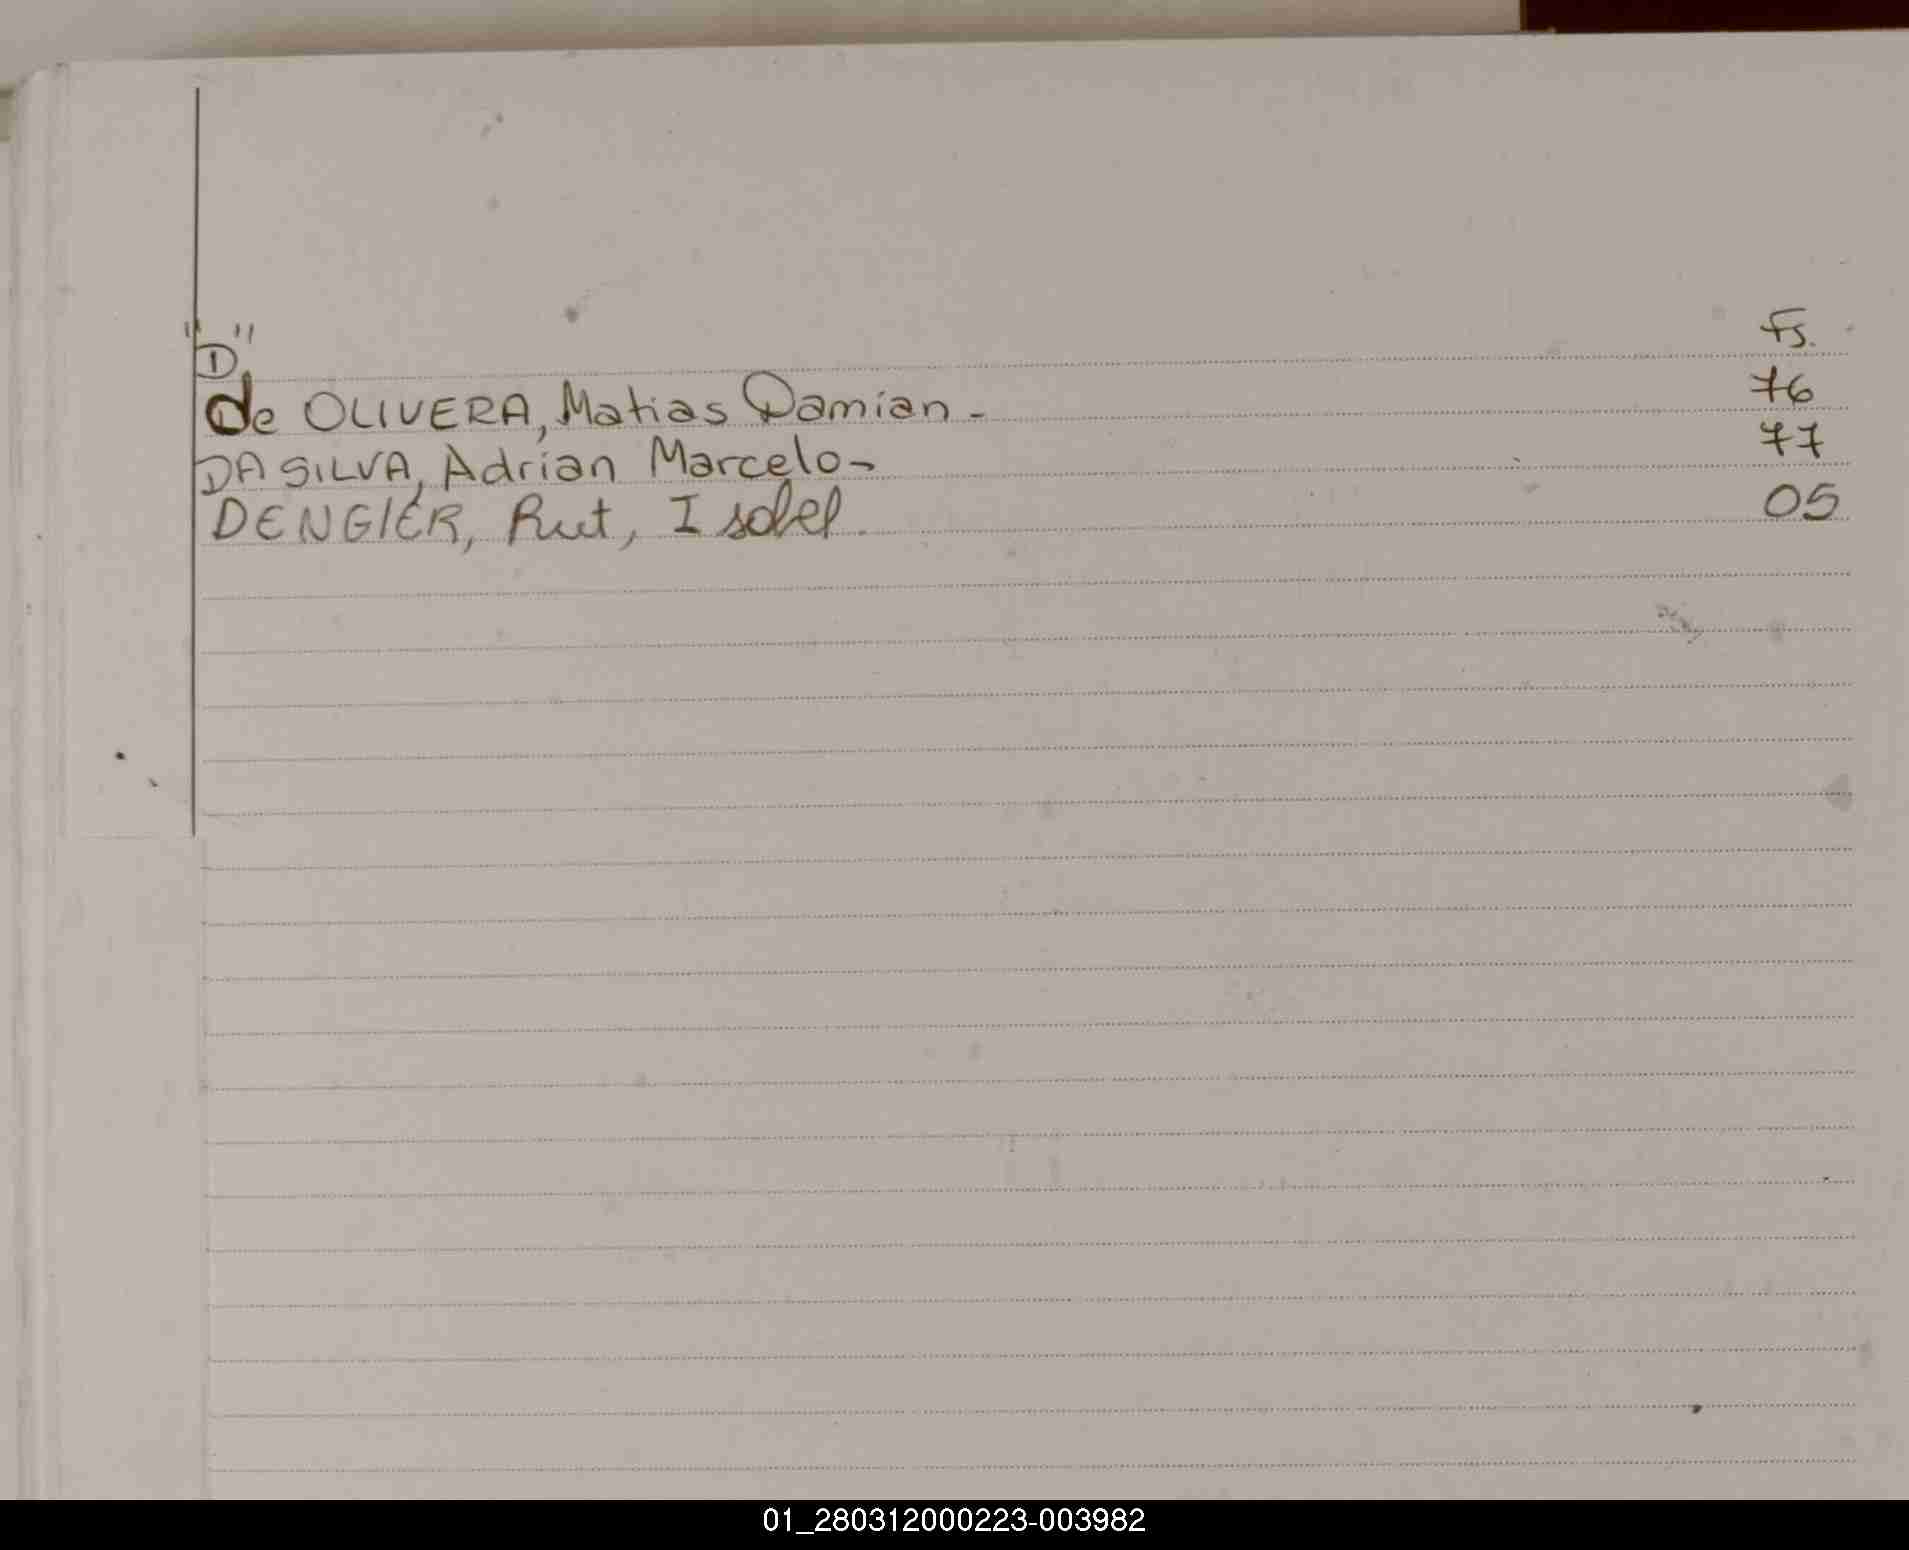 "D" Fs.
de OLIVERA, Matias Damian - 76
DA SILVA, Adrian Marcelo - 77
DENGIER, Rut, Isabel. 05
01_280312000223-003982